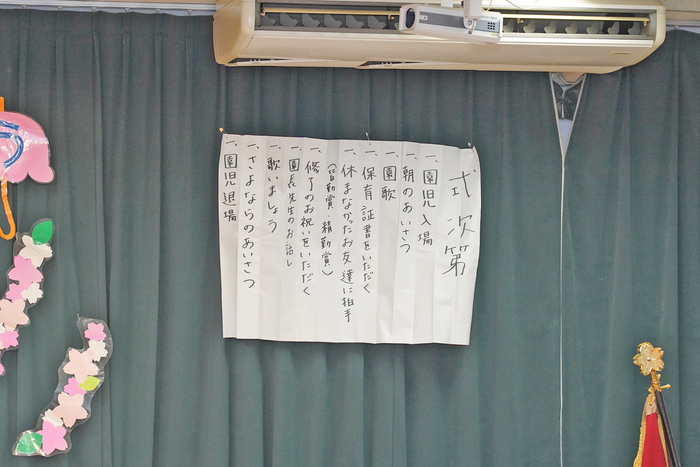 式次第
一、園児入場
一、朝のあいさつ
一、園歌
一、保育証書をいただく
一、休まなかったお友達に拍手
（皆勤賞・精勤賞）
一、修了のお祝いをいただく
一、園長先生のお話し
一、歌いましょう
一、さよならのあいさつ
一、園児退場